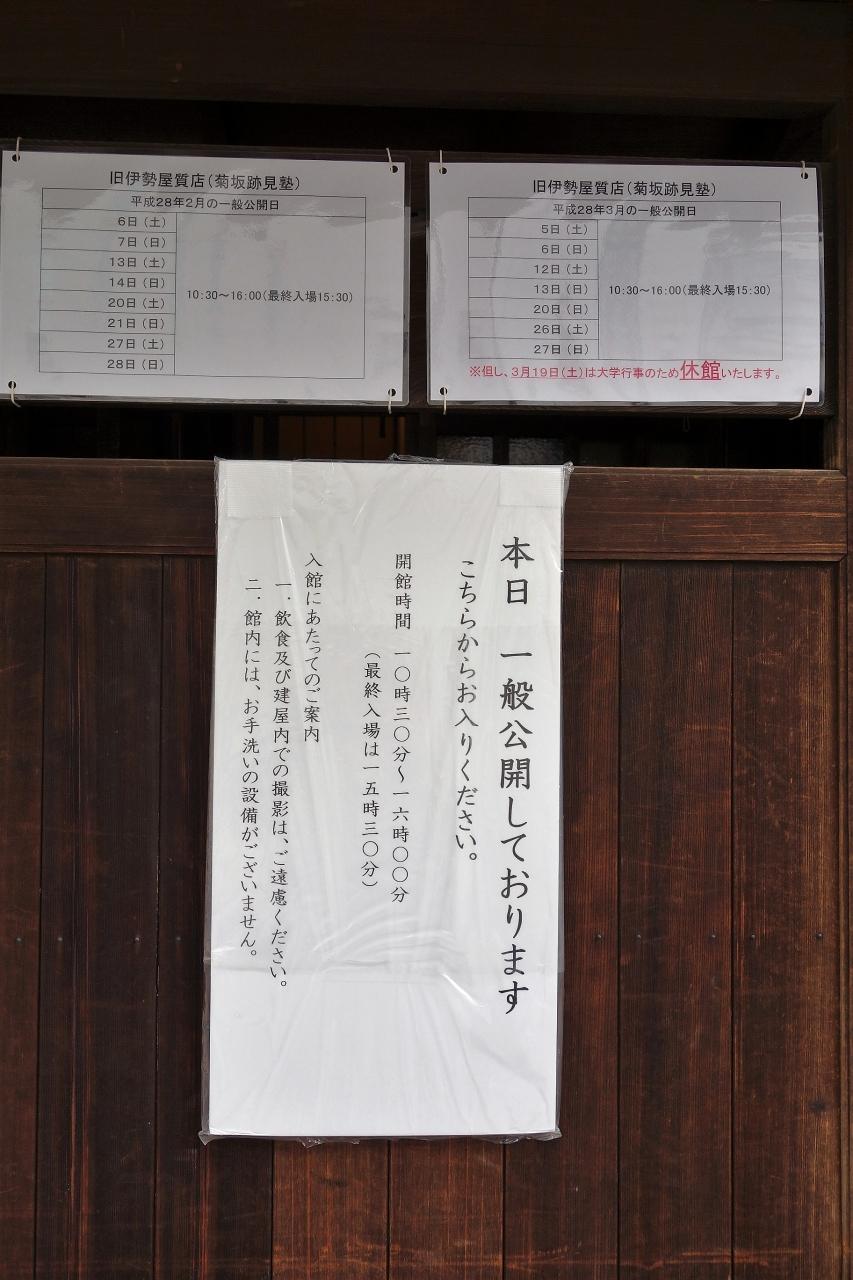 旧伊勢屋質店(菊坂跡見塾)
平成28年2月の一般公開日
6日(土)
7日(日)
13日(土)
14日(日)
20日(土)
21日(日)
27日(土)
28日(日)
10:30～16:00(最終入場15:30)
旧伊勢屋質店(菊坂跡見塾)
平成28年3月の一般公開日
5日(土)
6日(日)
12日(土)
13日(日)
20日(日)
26日(土)
27日(日)
10:30～16:00(最終入場15:30)
※但し、3月19日(土)は大学行事のため休館いたします。
本日 一般公開しております
こちらからお入りください。
開館時間 一〇時三〇分～一六時〇〇分
(最終入場は一五時三〇分)
入館にあたってのご案内
一．飲食及び建屋内での撮影は、ご遠慮ください。
二．館内には、お手洗いの設備がございません。